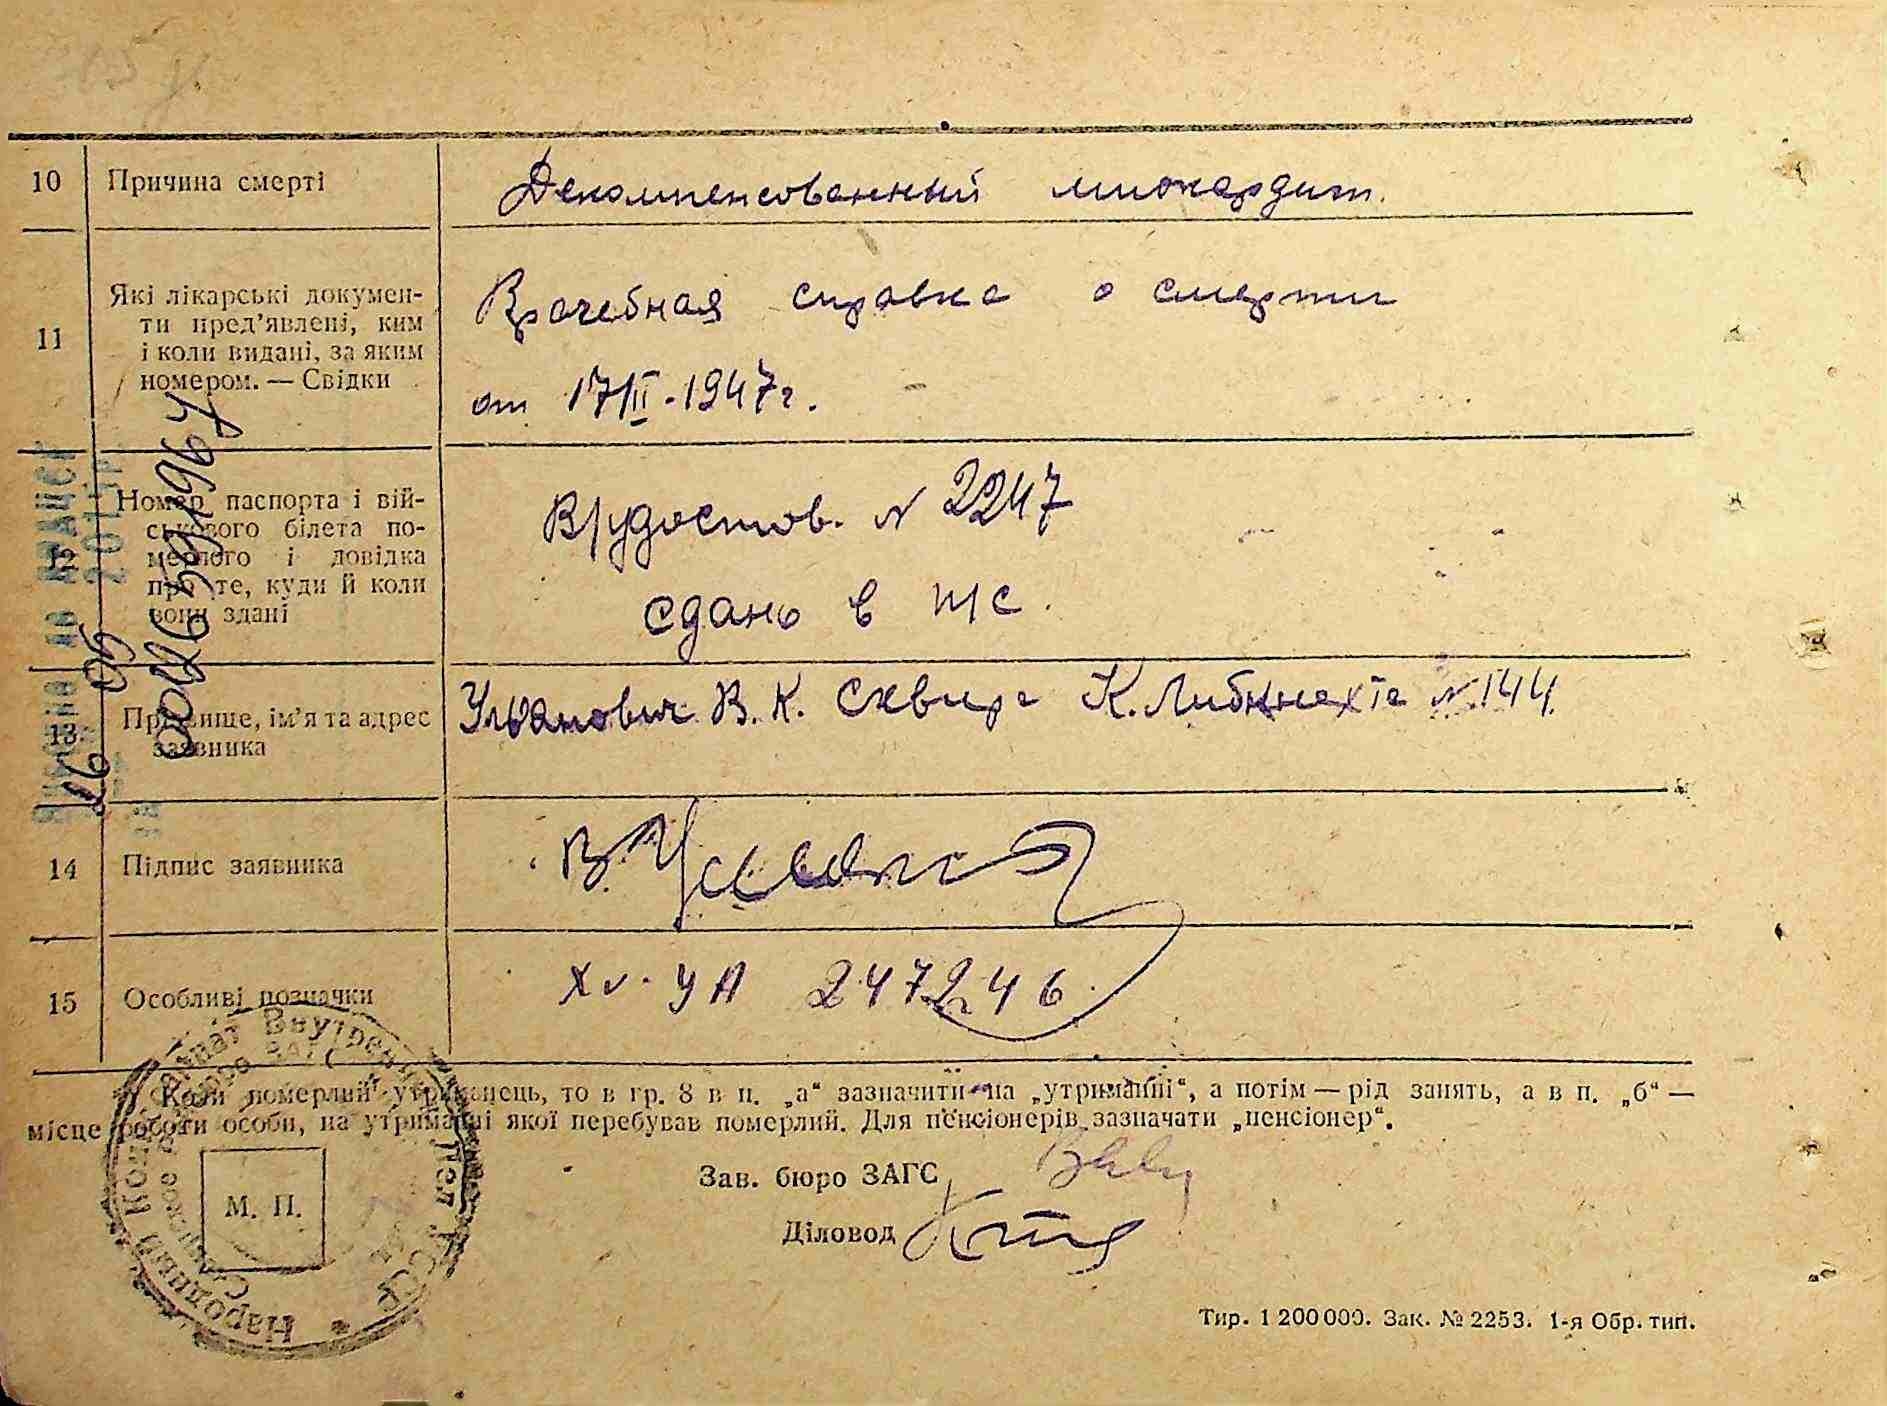 10 Причина смерті
Декомпенсованный миокардит.
11 Які лікарські докумен-
ти пред’явлені, ким
і коли видані, за яким
номером. — Свідки
Врачебная справка о смерти
от 17/II-1947г.
12 Номер паспорта і вій-
ськового білета по-
мерлого і довідка
про те, куди й коли
вони здані
В/удостов. № 2247
сдано в п/с.
13 Прізвище, ім’я та адрес
заявника
Ульянович В. К. Сквира К. Либкнехта № 144.
14 Підпис заявника
15 Особливі позначки
УА 247246
Коли померлий утриманець, то в гр. 8 в п. „а“ зазначити „на утриманні“, а потім — рід занять, а в п. „б“ —
місце роботи особи, на утриманні якої перебував померлий. Для пенсіонерів зазначати „пенсіонер“.
М. П.
Зав. бюро ЗАГС
Діловод
Тир. 1 200 000. Зак. № 2253. 1-я Обр. тип.